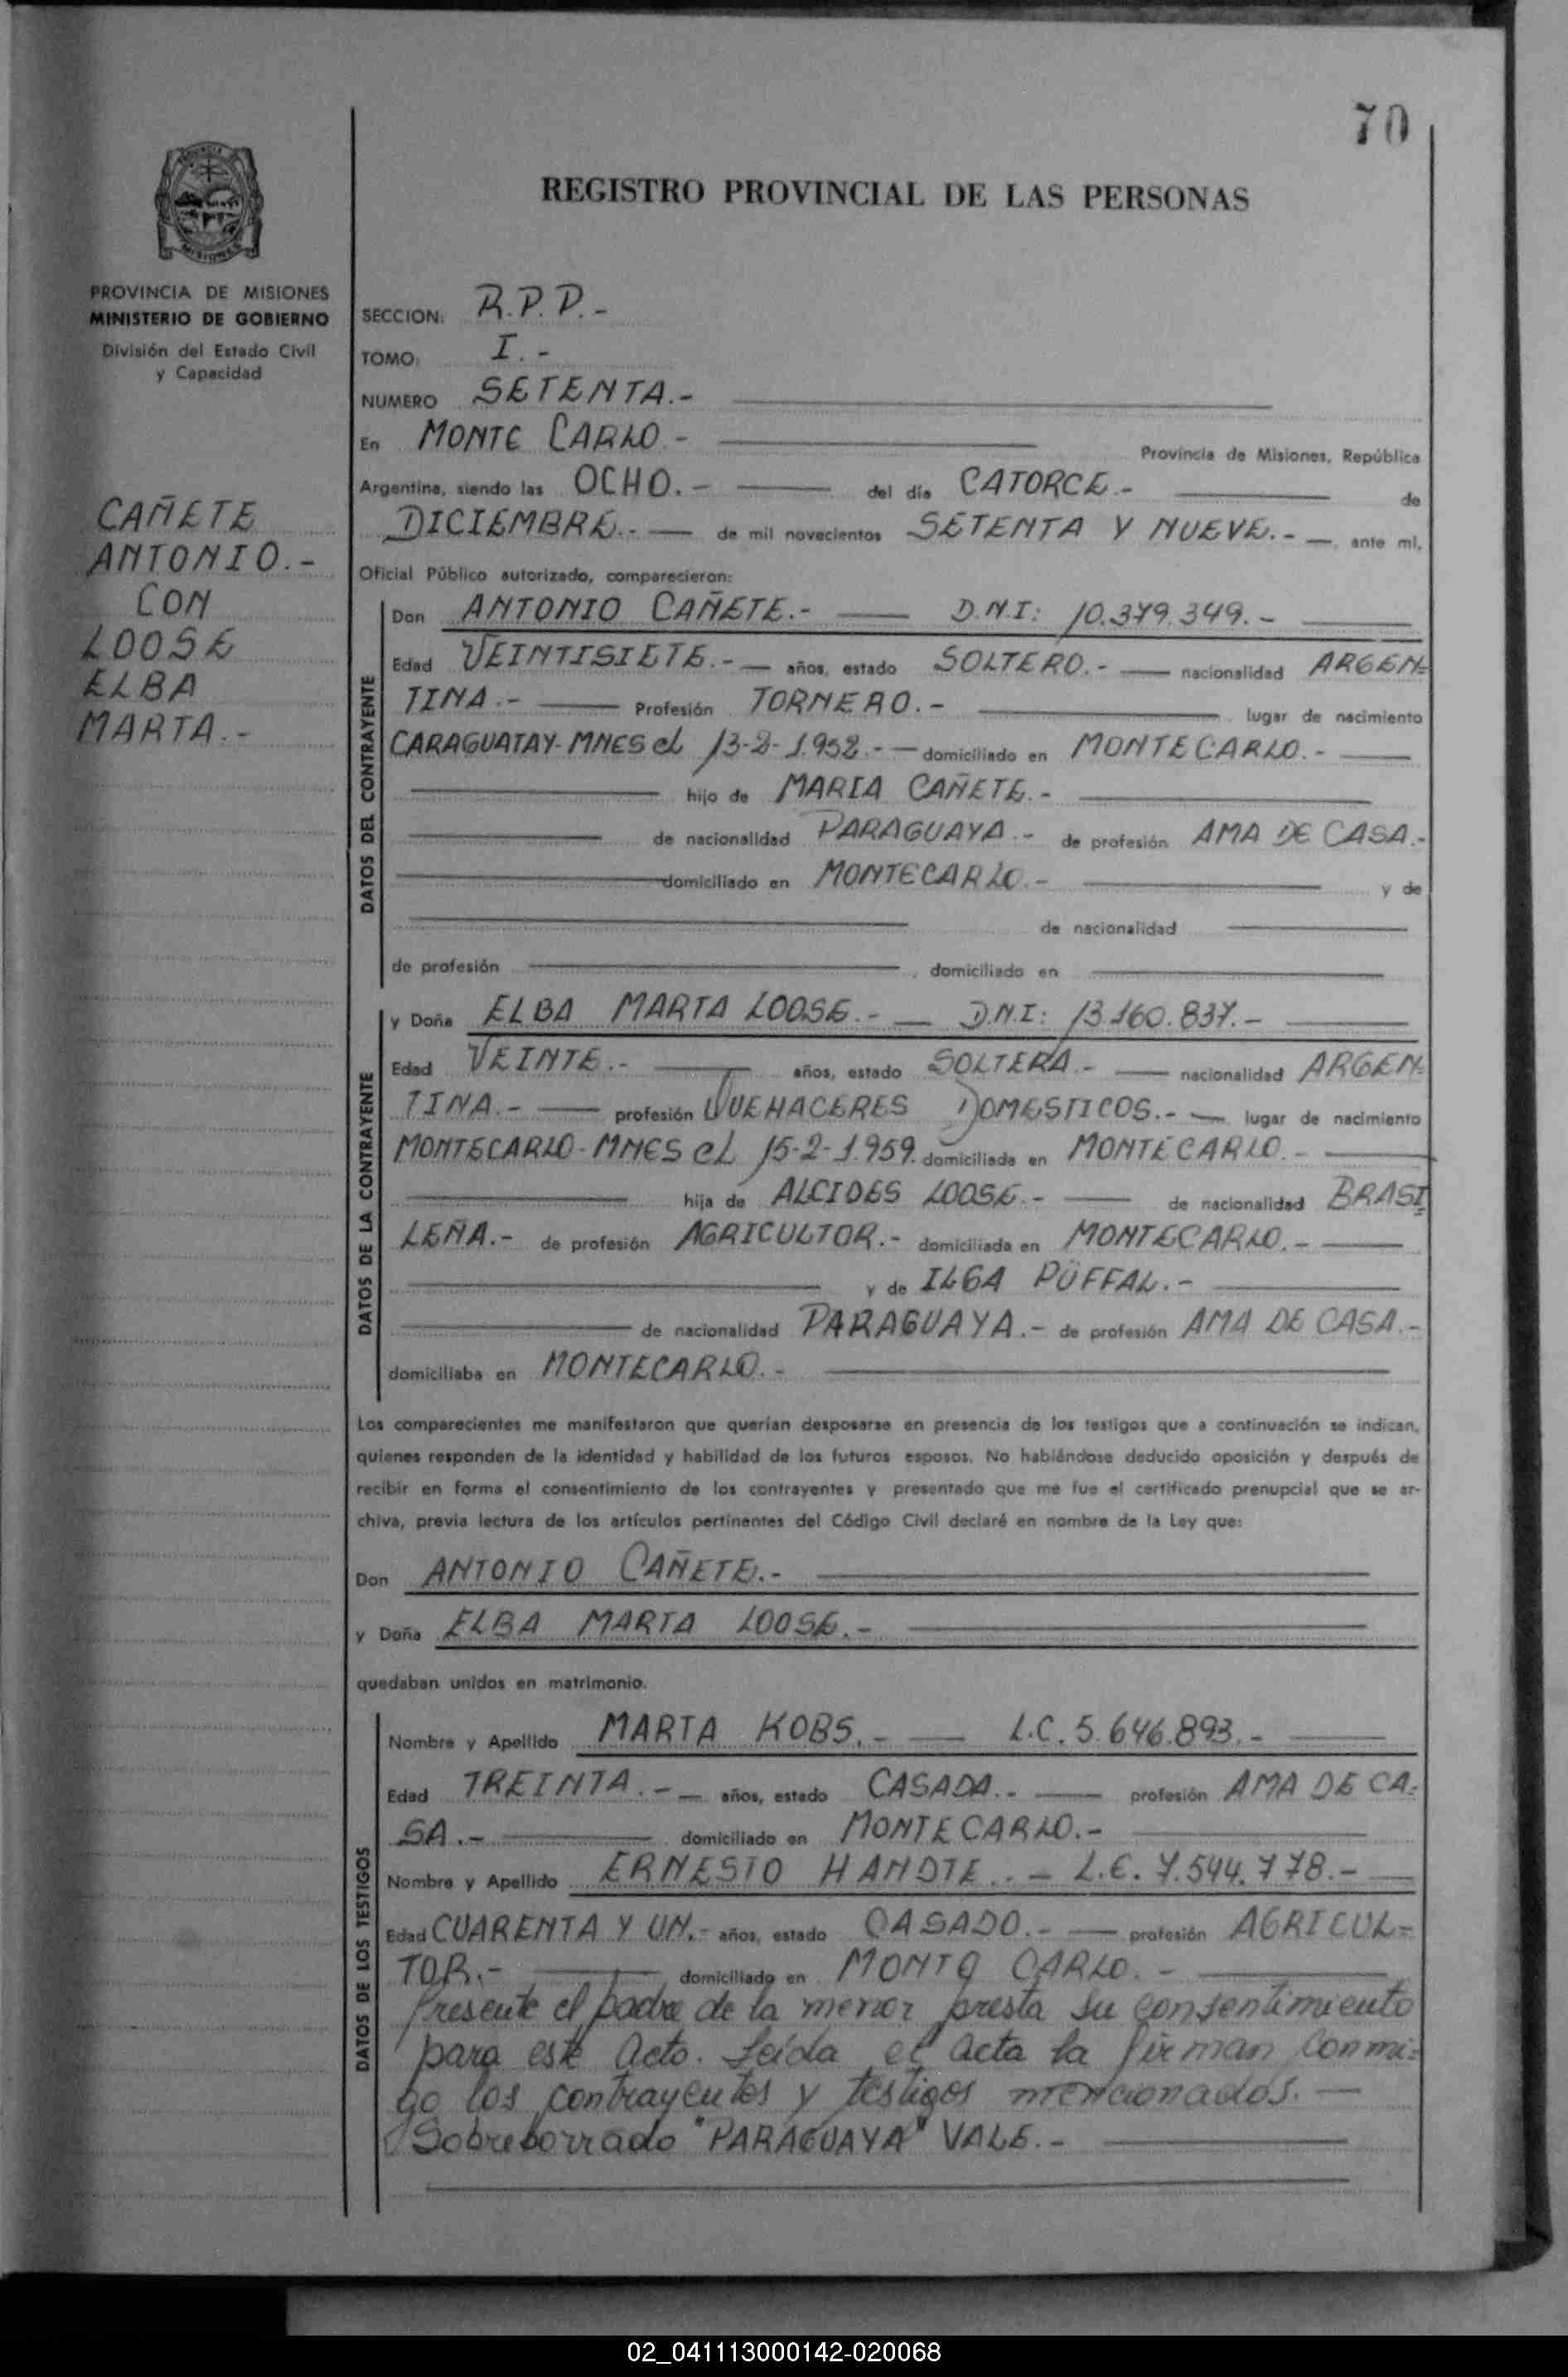 70
REGISTRO PROVINCIAL DE LAS PERSONAS
MISIONES
PROVINCIA DE MISIONES
MINISTERIO DE GOBIERNO
División del Estado Civil
y Capacidad
CAÑETE
ANTONIO.-
CON
LOOSE
ELBA
MARTA.-
SECCION: R.P.P.-
TOMO: I.-
NUMERO SETENTA.-
En MONTE CARLO.- Provincia de Misiones, República
Argentina, siendo las OCHO.- del día CATORCE.- de
DICIEMBRE.- de mil novecientos SETENTA Y NUEVE.- ante mí,
Oficial Público autorizado, comparecieron:
DATOS DEL CONTRAYENTE
Don ANTONIO CAÑETE.- D.N.I: 10.379.349.-
Edad VEINTISIETE.- años, estado SOLTERO.- nacionalidad ARGEN=
TINA.- Profesión TORNERO.- lugar de nacimiento
CARAGUATAY-MNES el 13-2-1.952.- domiciliado en MONTECARLO.-
hijo de MARIA CAÑETE.-
de nacionalidad PARAGUAYA.- de profesión AMA DE CASA.-
domiciliado en MONTECARLO.- y de
de nacionalidad
de profesión , domiciliado en
DATOS DE LA CONTRAYENTE
y Doña ELBA MARTA LOOSE.- D.N.I: 13.160.837.-
Edad VEINTE.- años, estado SOLTERA.- nacionalidad ARGEN=
TINA.- profesión QUEHACERES DOMESTICOS.- lugar de nacimiento
MONTECARLO-MNES el 15-2-1.959. domiciliada en MONTECARLO.-
hija de ALCIDES LOOSE.- de nacionalidad BRASI
LEÑA.- de profesión AGRICULTOR.- domiciliada en MONTECARLO.-
y de ILGA PÜFFAL.-
de nacionalidad PARAGUAYA.- de profesión AMA DE CASA.-
domiciliaba en MONTECARLO.-
Los comparecientes me manifestaron que querían desposarse en presencia de los testigos que a continuación se indican,
quienes responden de la identidad y habilidad de los futuros esposos. No habiéndose deducido oposición y después de
recibir en forma el consentimiento de los contrayentes y presentado que me fue el certificado prenupcial que se ar-
chiva, previa lectura de los artículos pertinentes del Código Civil declaré en nombre de la Ley que:
Don ANTONIO CAÑETE.-
y Doña ELBA MARTA LOOSE.-
quedaban unidos en matrimonio.
DATOS DE LOS TESTIGOS
Nombre y Apellido MARTA KOBS.- L.C. 5.646.893.-
Edad TREINTA.- años, estado CASADA.- profesión AMA DE CA=
SA.- domiciliado en MONTECARLO.-
Nombre y Apellido ERNESTO HANDTE.- L.E. 7.544.778.-
Edad CUARENTA Y UN.- años, estado CASADO.- profesión AGRICUL=
TOR.- domiciliado en MONTE CARLO.-
Presente el padre de la menor presta su consentimiento
para este Acto. Leída el Acta la firman conmi=
go los contrayentes y testigos mencionados.-
Sobreborrado "PARAGUAYA" VALE.-
02_041113000142-020068